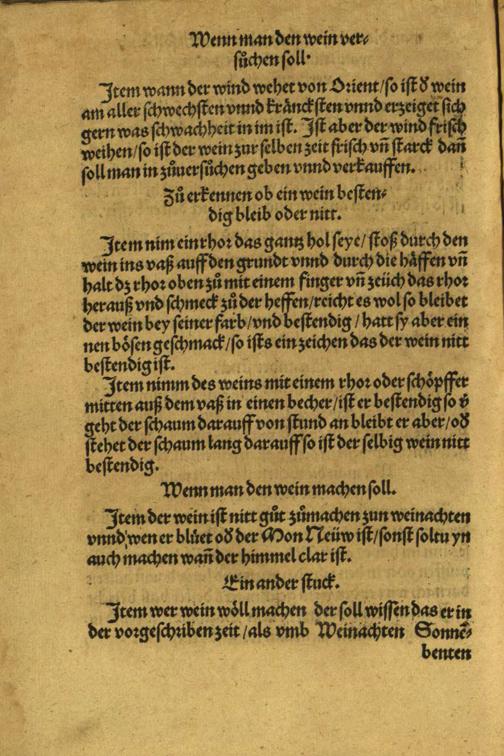 Wenn man den wein ver⸗
sůchen soll·
Item wann der wind wehet von Orient/so ist d̕ wein
am aller schwechsten vnnd kräncksten vnnd erzeiget sich
gern was schwachheit in im ist. Ist aber der wind frisch
weihen/so ist der wein zur selben zeit frisch vn̄ starck dan̄
soll man in zůuersůchen geben vnnd verkauffen.
Zů erkennen ob ein wein besten⸗
dig bleib oder nitt.
Item nim ein rhor das gantz hol seye/stoß durch den
wein ins vaß auff den grundt vnnd durch die häffen vn̄
halt dz rhor oben zů mit einem finger vn̄ zeüch das rhor
herauß vnd schmeck zů der heffen/reicht es wol so bleibet
der wein bey seiner farb/vnd bestendig/hatt sy aber ein
nen bösen geschmack/so ists ein zeichen das der wein nitt
bestendig ist.
Item nimm des weins mit einem rhor oder schöpffer
mitten auß dem vaß in einen becher/ist er bestendig so v̕
geht der schaum darauff von stund an bleibt er aber/od̕
stehet der schaum lang darauff so ist der selbig wein nitt
bestendig.
Wenn man den wein machen soll.
Item der wein ist nitt gůt zůmachen zun weinachten
vnnd wen er blüet od̕ der Mon Neüw ist/sonst soltu yn
auch machen wan̄ der himmel clar ist.
Ein ander stuck.
Item wer wein wöll machen der soll wissen das er in
der vorgeschriben zeit/als vmb Weinachten Sonnē⸗
benten